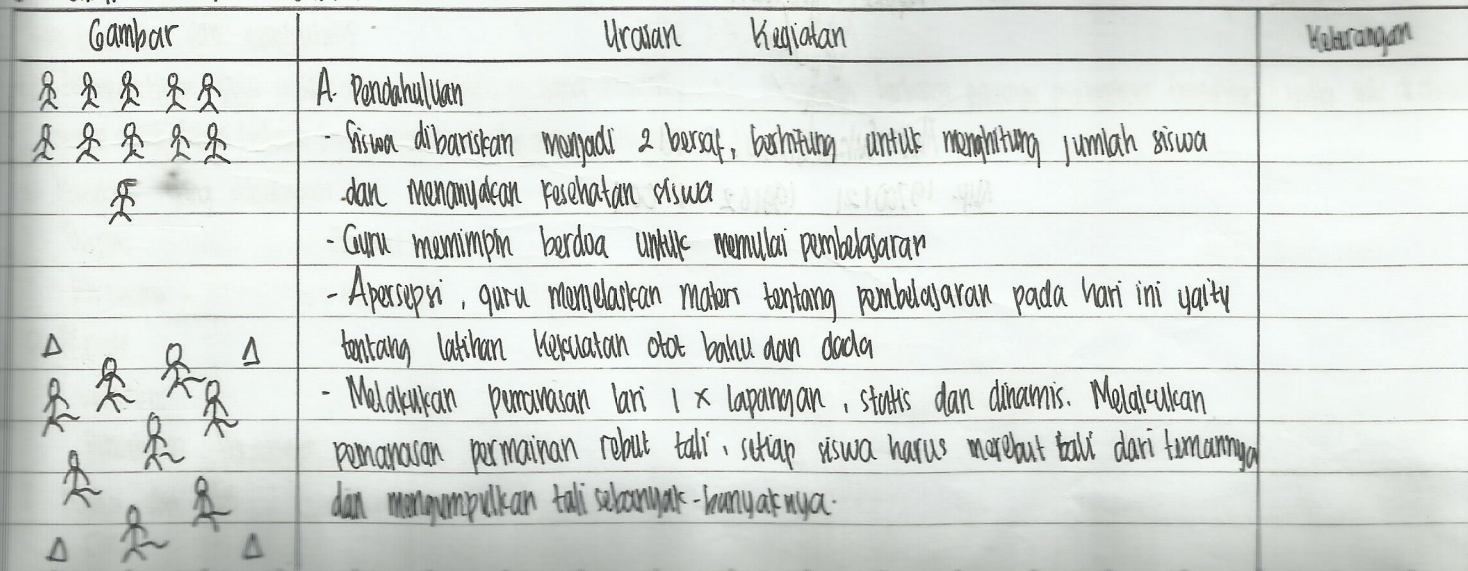 Gambar Uraian Kegiatan Keterangan
A. Pendahuluan
- Siswa dibariskan menjadi 2 bersaf, berhitung untuk menghitung jumlah siswa
dan menanyakan kesehatan siswa
- Guru memimpin berdoa untuk memulai pembelajaran
- Apersepsi, guru menjelaskan materi tentang pembelajaran pada hari ini yaitu
tentang latihan kekuatan otot bahu dan dada
- Melakukan pemanasan lari 1 x lapangan, statis dan dinamis. Melakukan
pemanasan permainan rebut tali, setiap siswa harus merebut tali dari temannya
dan mengumpulkan tali sebanyak-banyaknya.